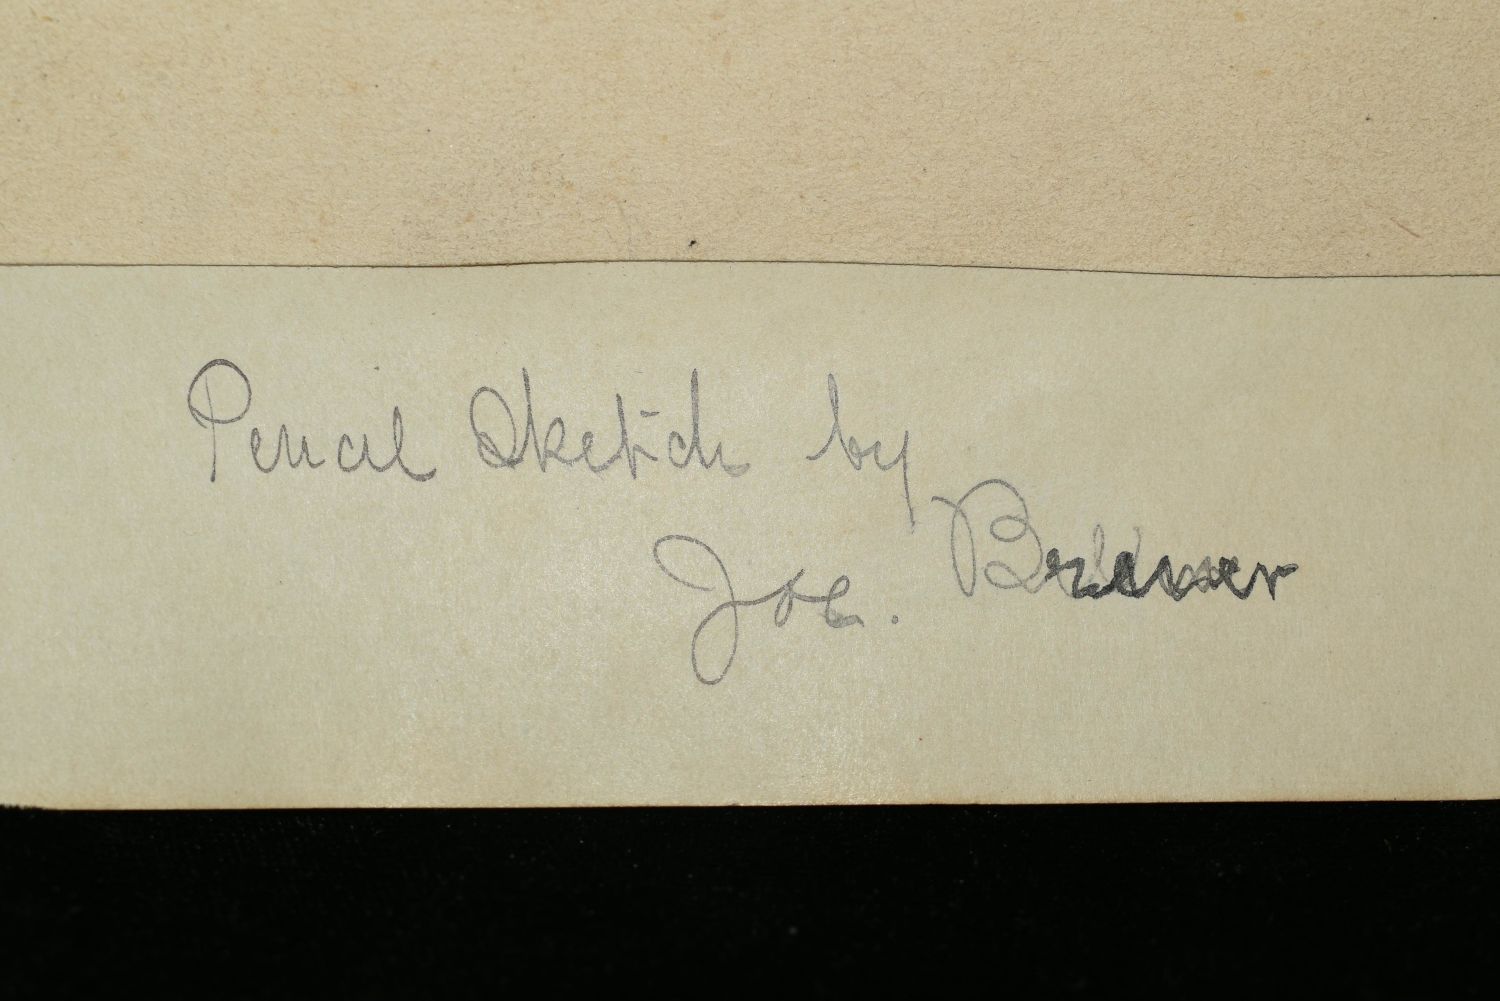 Pencil Sketch by
Joe.